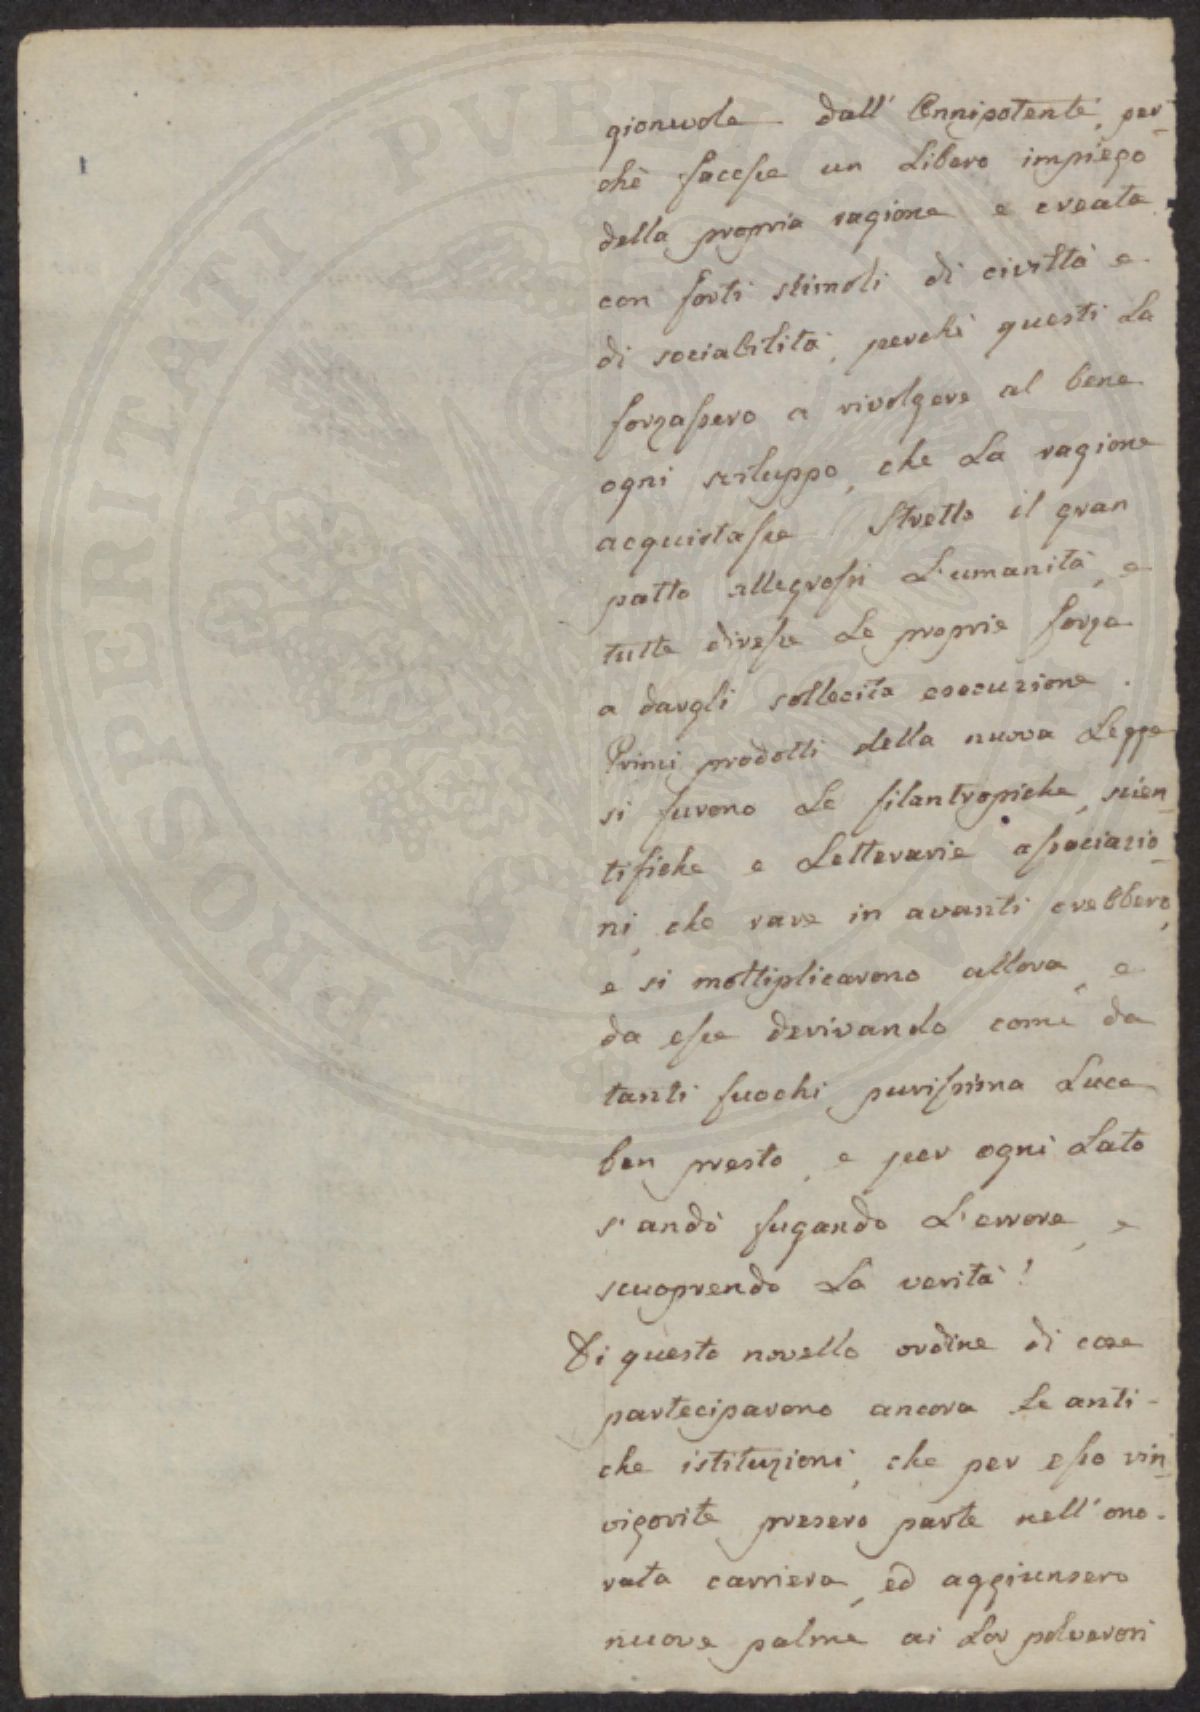 gionevole dall' Onnipotente, per-
chè facesse un Libero impiego
della propria ragione e creata
con forti stimoli di civiltà e
di sociabilità, perchè questi La
forzassero a rivolgere al bene
ogni sviluppo, che La ragione
acquistasse. Stretto il gran
patto allegrossi L'umanità, e
tutte diresse Le proprie forze
a dargli sollecita esecuzione.
Primi prodotti della nuova Legge
si furono Le filantropiche, scien-
tifiche e Letterarie associazio-
ni, che rare in avanti crebbero,
e si moltiplicarono allora, e
da esse derivando come da
tanti fuochi purissima Luce
ben presto, e per ogni Lato
s'andò fugando L'errore, e
scuoprendo La verità!
Di questo novello ordine di cose
parteciparono ancora Le anti-
che istituzioni, che per esso rin-
vigorite presero parte nell'ono-
rata carriera, ed aggiunsero
nuove palme ai Lor polverosi
PROSPERITATI PVBLICAE